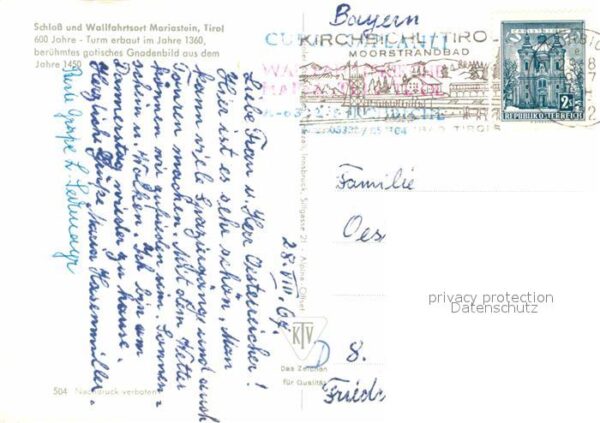 Schloß und Wallfahrtsort Mariastein, Tirol
600 Jahre - Turm erbaut im Jahre 1360,
berühmtes gotisches Gnadenbild aus dem
Jahre 1450
Bayern
KIRCHBICHL TIROL
MOORSTRANDBAD
S 2.-
REPUBLIK ÖSTERREICH
28. VIII. 64.
Liebe Frau u. Herr Oesterreicher!
Hier ist es sehr schön, Man
kann viele Spaziergänge und auch
Touren machen. Mit dem Wetter
können wir zufrieden sein. Sonnen-
schein u. Wolken. Ich bin am
Donnerstag wieder zu hause.
Herzliche Grüße Maria Hasenmiller.
Innsbruck, Sillgasse 21 - Alpina-Offset
KTV
Das Zeichen
für Qualität
504 Nachdruck verboten
Familie
Oes
D 8.
Fried
privacy protection
Datenschutz